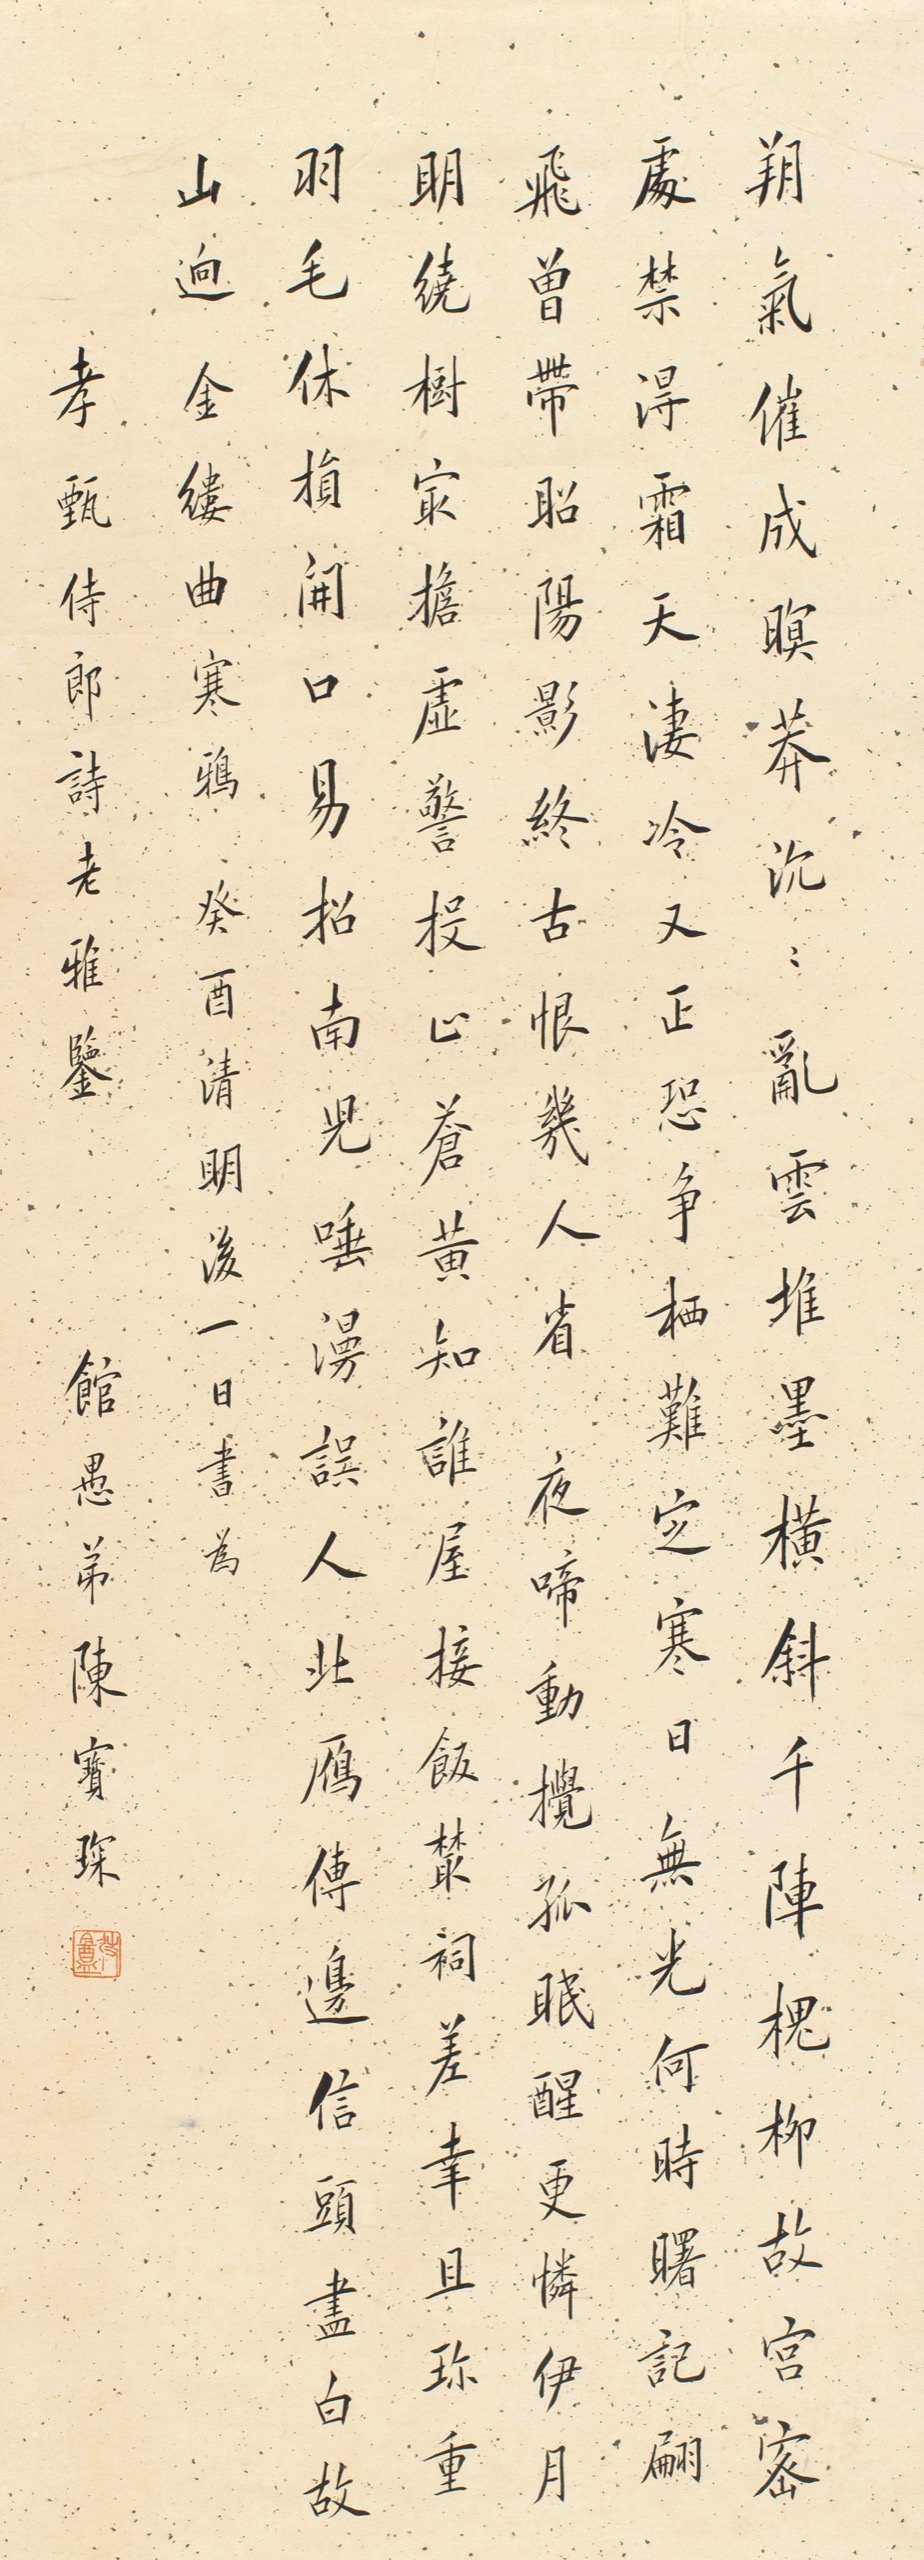 朔氣催成暝莽沉〻亂雲堆墨橫斜千陣槐柳故宮密
處禁得霜天淒冷又正恐爭栖難定寒日無光何時曙記翩
飛曾帶昭陽影終古恨幾人省夜啼動攪孤眠醒更憐伊月
明繞樹寂擔虛警投止蒼黃知誰屋接飯叢祠差幸且珎重
羽毛休損開口易招南兒唾漫誤人北鴈傳邊信頭盡白故
山逈金縷曲寒鴉癸酉清明後一日書為
孝甄侍郎詩老雅鑒館愚弟陳寶琛